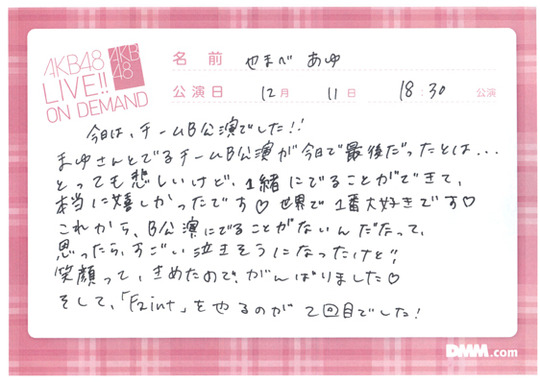 AKB48
LIVE!!
ON DEMAND
AKB
48
名前 やまべ あゆ
公演日 12月 11日 18:30 公演
今日は、チームB公演でした!!
まゆさんとでるチームB公演が今日で最後だったとは...
とっても悲しいけど、1緒にでることができて、
本当に嬉しかったです♡世界で1番大好きです♡
これから、B公演にでることがないんだだって、
思ったら、すごい泣きそうになったけど、
笑顔って、きめたので、がんばりました♡
そして、「Faint」をやるのが2回目でした!
DMM.com